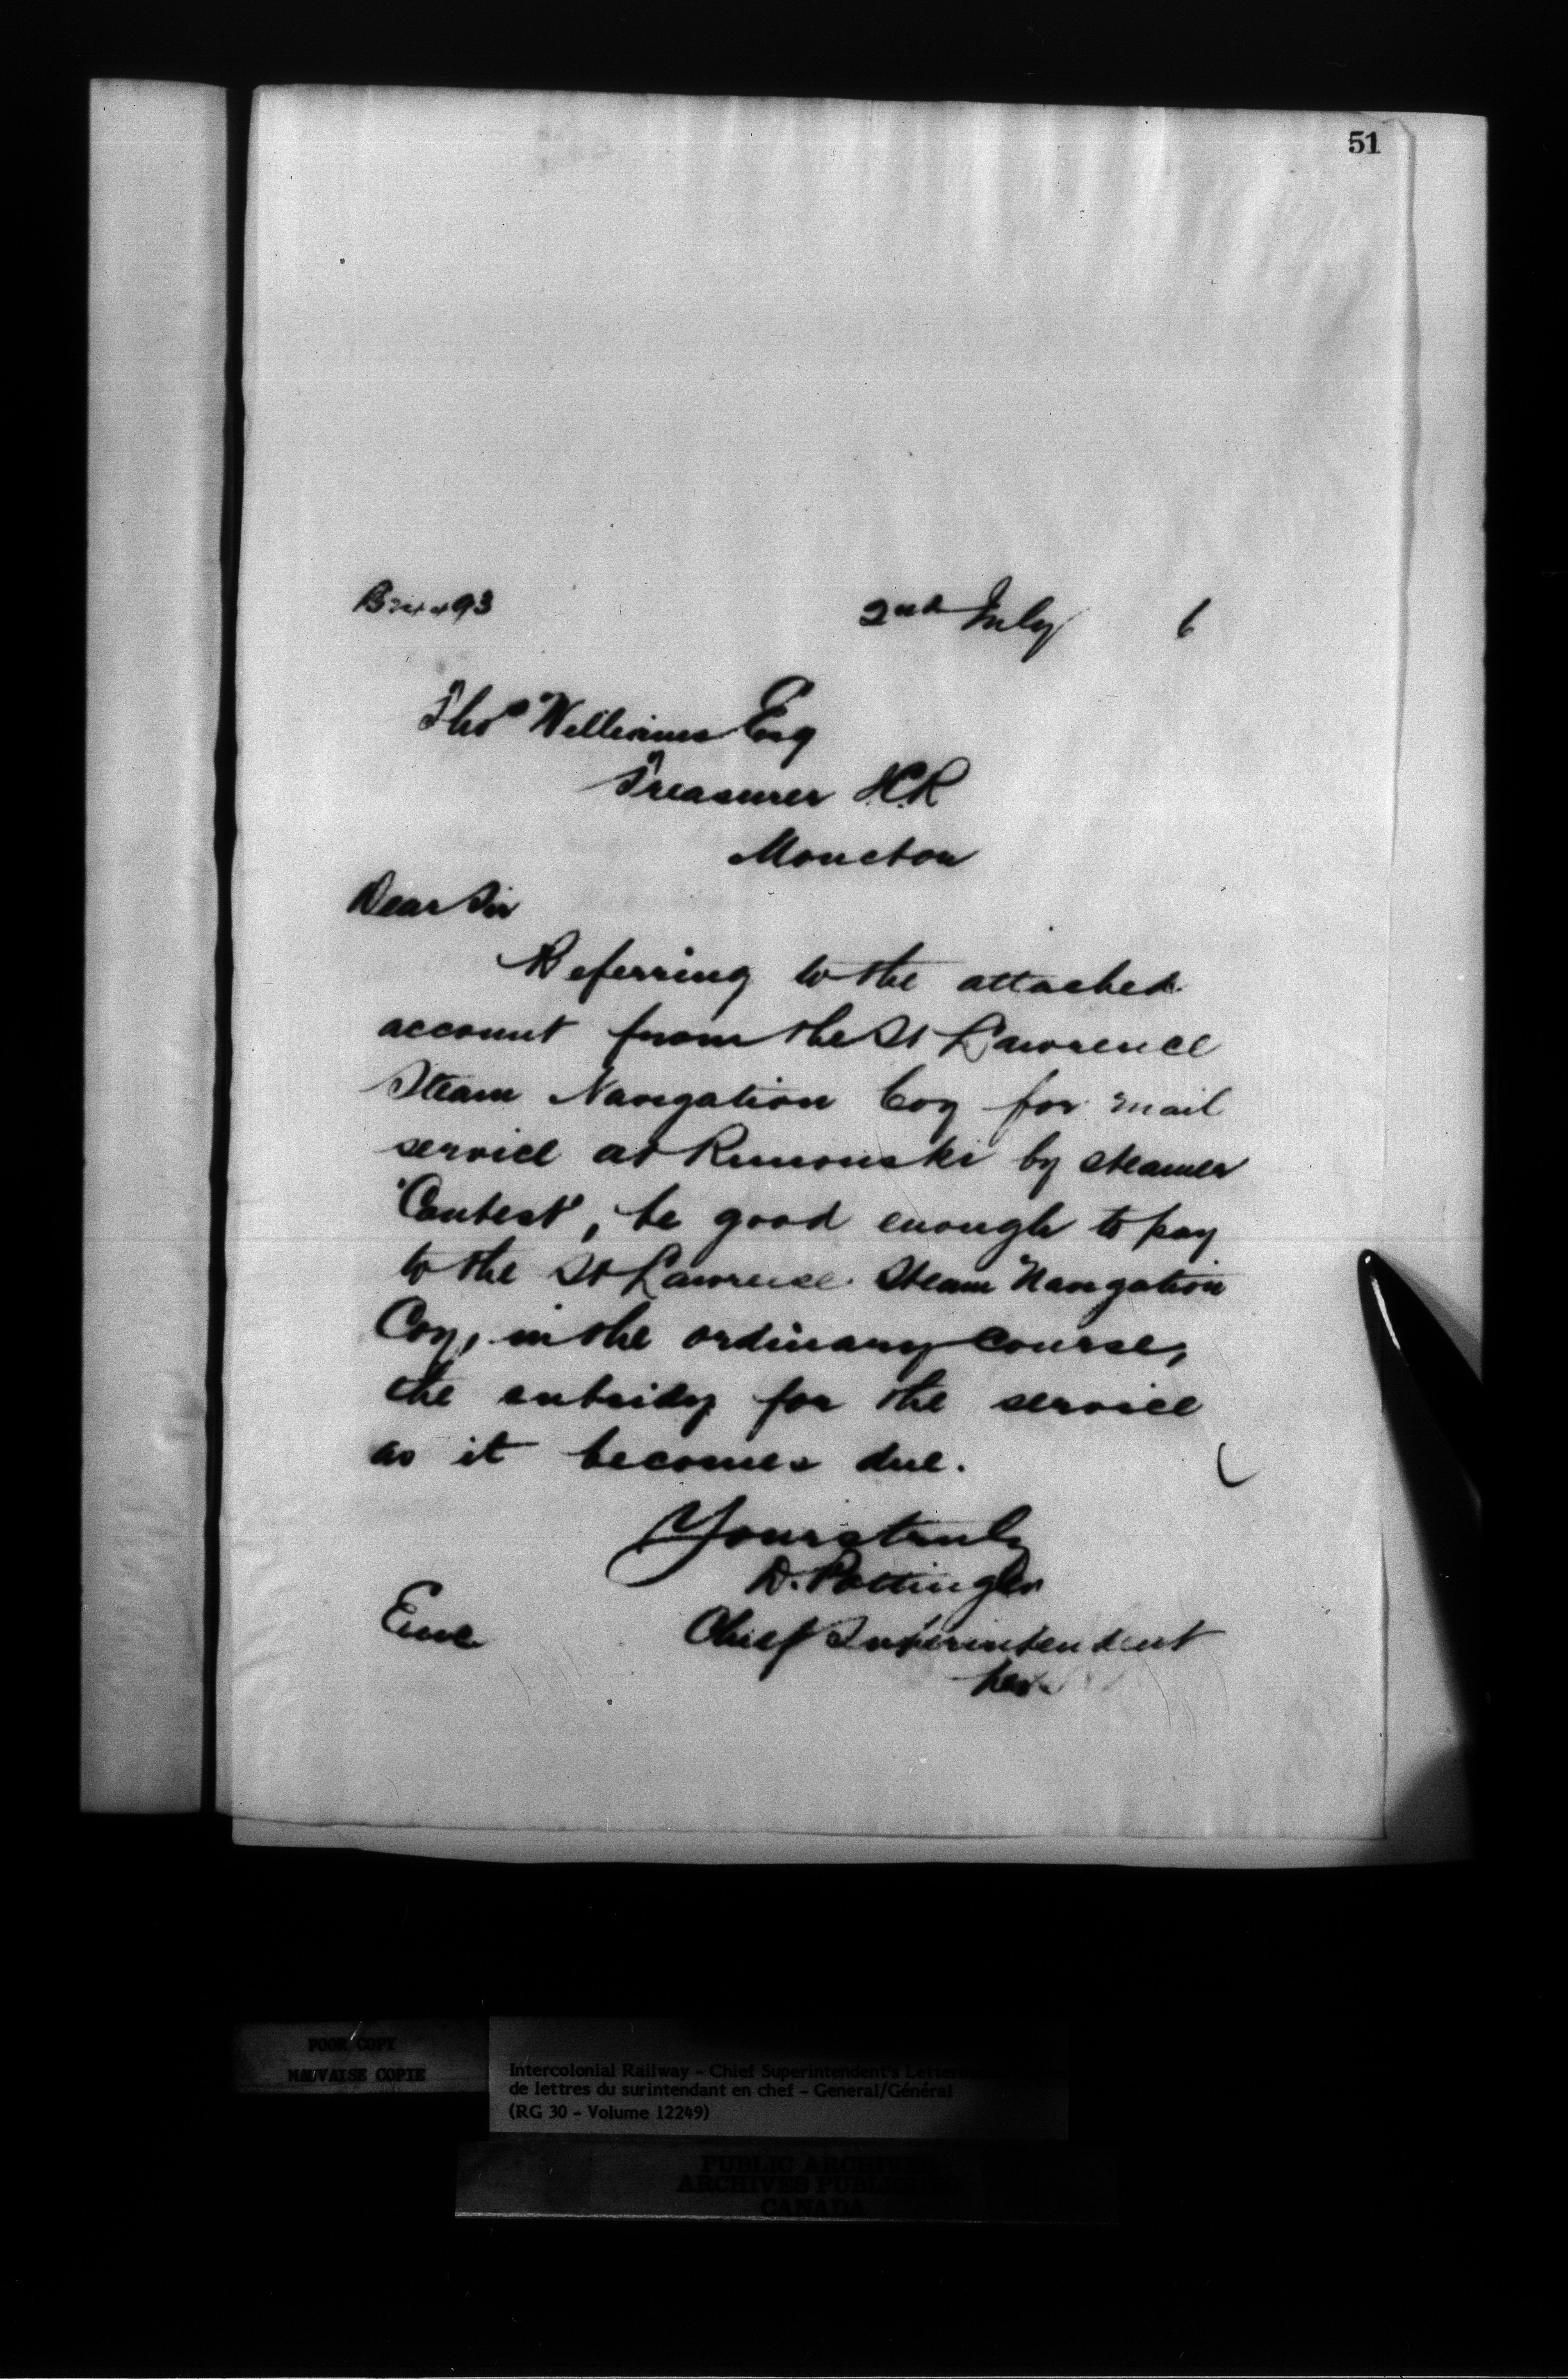 51
2nd July 6
Thos Williams Esq
Treasurer I.C.R
Moncton
Dear Sir
Referring to the attached
account from the St Lawrence
Steam Navigation Coy for mail
service at Rimouski by steamer
'Contest', be good enough to pay
to the St Lawrence Steam Navigation
Coy, in the ordinary course,
the subsidy for the service
as it becomes due.
Yours truly
D. Pottinger
Enc
Chief Superintendent
POOR COPY
MAUVAISE COPIE
Intercolonial Railway - Chief Superintendent's
de lettres du surintendant en chef - General/Général
(RG 30 - Volume 12249)
PUBLIC ARCHIVES
ARCHIVES PUBLIQUES
CANADA